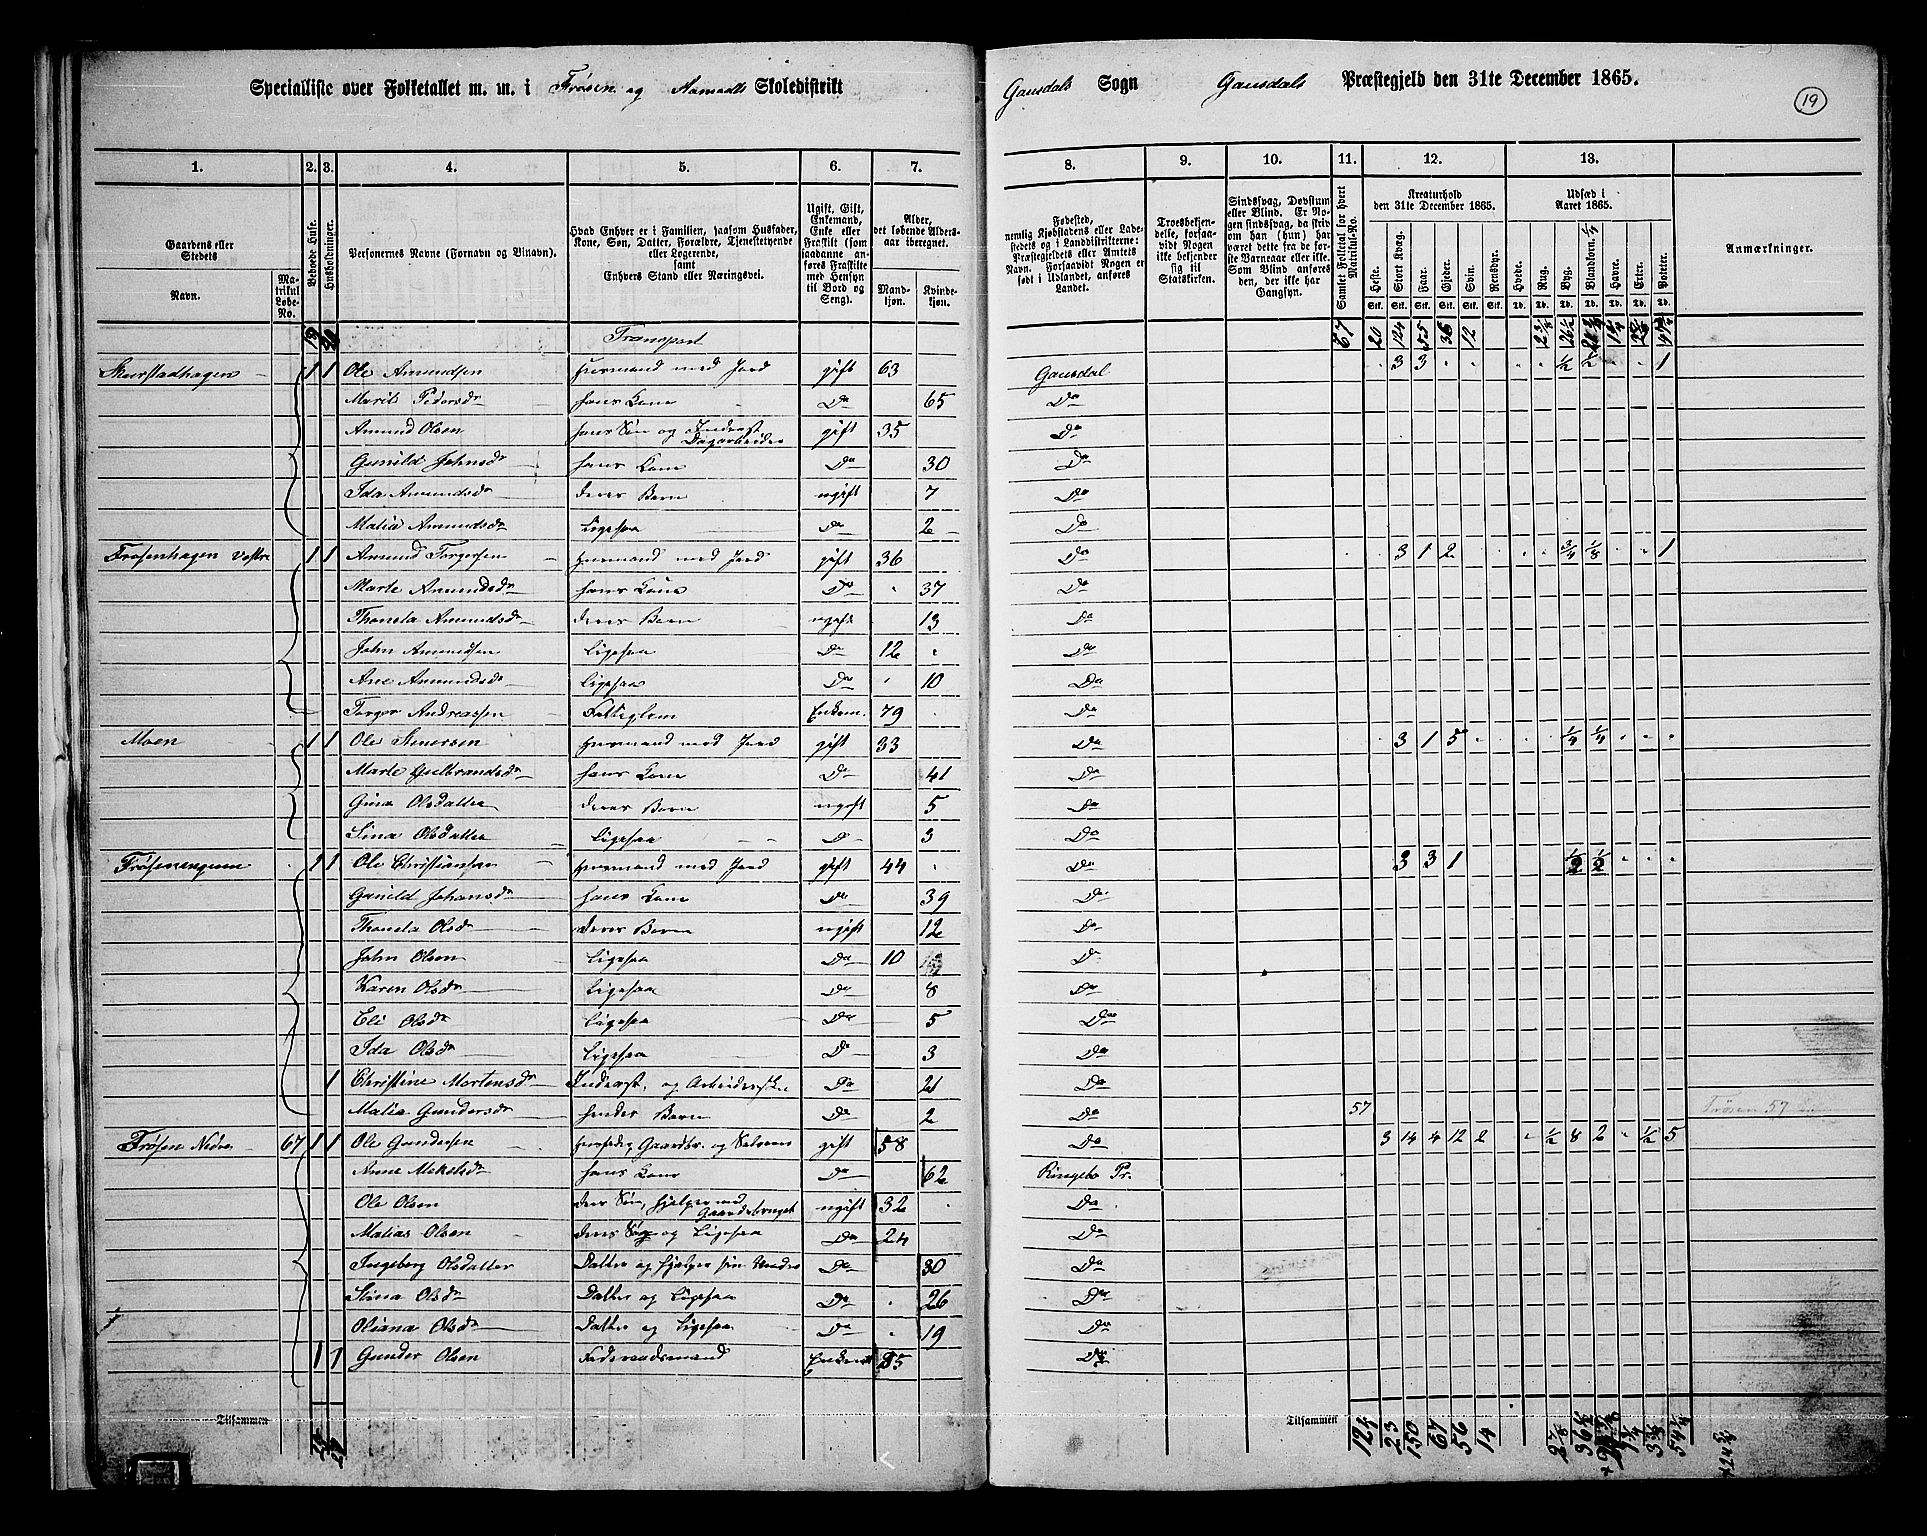 Specialliste over Folketallet m. m. i Frøsen og Skoledistrikt
Gausdals Sogn Gausdals Præstegjeld den 31te December 1865.
19
1. 2. 3. 4. 5. 6. 7. 8. 9. 10. 11. 12. 13.
Gaardens eller Stedets
Navn.
Matrikul Løbe-No.
Beboede Huse.
Husholdninger.
Personernes Navne (Fornavn og Binavn).
Hvad Enhver er i Familien, saasom Husfader, Kone, Søn, Datter, Forældre, Tjenestetyende eller Logerende, samt Enhvers Stand eller Næringsvei.
Ugift, Gift, Enkemand, Enke eller Fraskilt (som saadanne anføres Fraskilte med Hensyn til Bord og Seng).
Alder, det løbende Aldersaar iberegnet.
Mandkjøn. Kvindekjøn.
Fødested, nemlig Kjøbstadens eller Ladestedets og i Landdistrikterne: Præstegjeldets eller Amtets Navn. Forsaavidt Nogen er født i Udlandet, anføres Landet.
Troesbekjendelse, forsaavidt Nogen ikke bekjender sig til Statskirken.
Sindssvag, Døvstum eller Blind. Er Nogen sindssvag, da skriv om han (hun) har været dette fra de første Barneaar eller ikke. Som Blind anføres den, der ikke har Gangsyn.
Samlet Folketal for hvert Matrikul-No.
Kreaturhold den 31te December 1865.
Heste. Stort Kvæg. Faar. Gjeder. Svin. Rensdyr.
Udsæd i Aaret 1865.
Hvede. Rug. Byg. Blandkorn. Havre. Erter. Poteter.
Anmærkninger.
Transport 67 20 124 55 36 12
1 1 Ole Amundsen Huusmand med Jord gift 63 Gausdal 3 3 ½ ½ 1
Marit Pedersdr hans Kone Do 65 Do
Amund Olsen hans Søn og Inderst Dagarbeider gift 35 Do
Gunild Johnsdr hans Kone Do 30 Do
Ida Amundsdr deres Barn ugift 7 Do
Malia Amundsdr Ligesaa Do 2 Do
Frøsenhagen Vestre 1 1 Amund Torgersen Huusmand med Jord gift 36 Do 3 1 2 ¾ ⅛ 1
Marte Amundsdr hans Kone Do 37 Do
Thonela Amundsdr deres Barn ugift 13 Do
John Amundsen Ligesaa Do 12 Do
Ane Amundsdr Ligesaa Do 10 Do
Torger Andreassen Fattiglem Enkem. 79 Do
Moen 1 1 Ole Simensen Huusmand med Jord gift 33 Do 3 1 5 ¼ ¼
Marte Gulbrandsdr hans Kone Do 41 Do
Gina Olsdatter deres Barn ugift 5 Do
Sina Olsdatter Ligesaa D 3 Do
Frøsenengene 1 1 Ole Christiansen Huusmand med Jord gift 44 Do 3 3 1 ½ ½
Gunild Johansdr hans Kone Do 39 Do
Thonela Olsdr deres Barn ugift 12 Do
John Olsen Ligesaa Do 10 Do
Karen Olsdr Ligesaa Do 8 Do
Eli Olsdr Ligesaa Do 5 Do
Ida Olsdr Ligesaa D 3 Do
1 Christine Mortensdr Inderst, og Arbeiderske Do 21 Do
Malia Gundersdr hendes Barn Do 2 Do 57 Frøsen 57
Frøsen Nedre 67 1 1 Ole Gundersen Huusfader, Gaardbr. og Selveier gift 58 Do 3 14 4 12 2 ½ 8 2 ½ 5
Anne Mikelsdr hans Kone Do 62 Ringebo Pr.
Ole Olsen deres Søn, hjelper med Gaardsbruget ugift 32 Do
Matias Olsen deres Søn og Ligesaa Do 24 Do
Ingeborg Olsdatter Datter og hjelper sin Moder Do 30 Do
Stina Olsdr Datter og Ligesaa Do 26 Do
Oliana Olsdr Datter og Ligesaa Do 19 Do
1 1 Gunder Olsen Føderaadsmand Enkem 85 Do
Tilsammen
Tilsammen 124 23 150 67 56 14